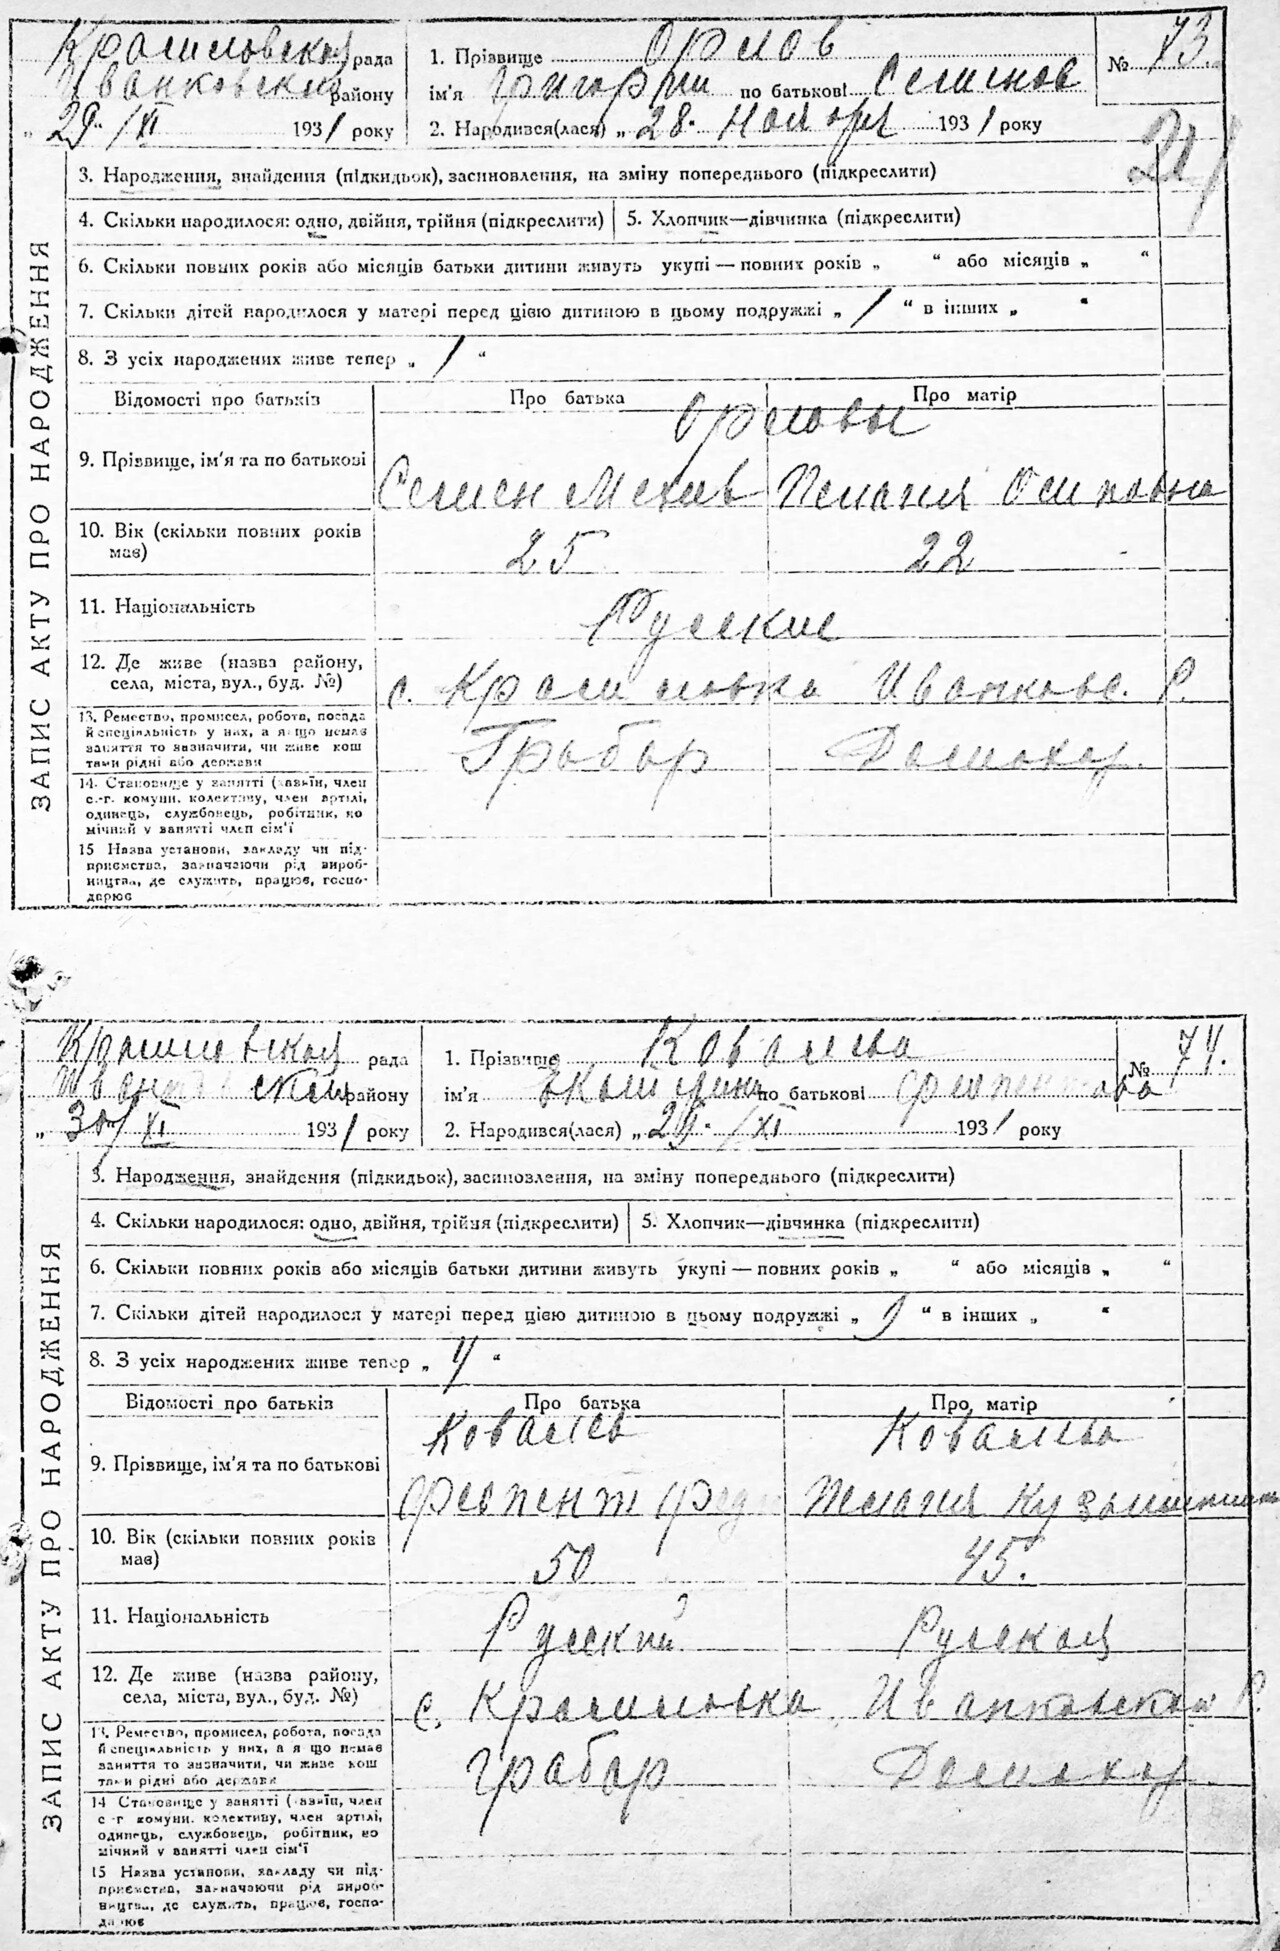 Красиловская рада
Иванковский району
„ 29. /XI 1931 року
1. Прізвище Орлов
ім'я Григорий по батькові Семенов
2. Народився(лася) „ 28. Ноября 1931 року
№ 73.
21
ЗАПИС АКТУ ПРО НАРОДЖЕННЯ
3. Народження, знайдення (підкидьок), засиновлення, на зміну попереднього (підкреслити)
4. Скільки народилося: одно, двійня, трійня (підкреслити) 5. Хлопчик—дівчинка (підкреслити)
6. Скільки повних років або місяців батьки дитини живуть укупі — повних років „ “ або місяців „ “
7. Скільки дітей народилося у матері перед цією дитиною в цьому подружжі „ 1 “ в інших „ “
8. З усіх народжених живе тепер „ 1 “
Відомості про батьків Про батька Про матір
Орловы
9. Прізвище, ім'я та по батькові
Семен Пелагия Осиповна
10. Вік (скільки повних років має) 25 22
11. Національність Русские
12. Де живе (назва району, села, міста, вул., буд. №) с. Красиловка Иванковс. Р.
13. Ремество, промисел, робота, посада й спеціяльність у них, а якщо немає заняття то зазначити, чи живе кош тами рідні або держави Грабар Домохоз.
14. Становище у занятті (хазяїн, член с.-г. комуни, колективу, член артілі, одинець, службовець, робітник, по мічний у занятті член сім'ї
15 Назва установи, закладу чи під- приємства, зазначаючи рід вироб- ництва, де служить, працює, госпо- дарює
Красиловская рада
району
„ 30/ XI 1931 року
1. Прізвище Ковалева
ім'я Екатерина по батькові
2. Народився(лася) „ 29. /XI 1931 року
№ 74.
ЗАПИС АКТУ ПРО НАРОДЖЕННЯ
3. Народження, знайдення (підкидьок), засиновлення, на зміну попереднього (підкреслити)
4. Скільки народилося: одно, двійня, трійня (підкреслити) 5. Хлопчик—дівчинка (підкреслити)
6. Скільки повних років або місяців батьки дитини живуть укупі — повних років „ “ або місяців „ “
7. Скільки дітей народилося у матері перед цією дитиною в цьому подружжі „ “ в інших „ “
8. З усіх народжених живе тепер „ 4 “
Відомості про батьків Про батька Про матір
Ковалев Ковалева
9. Прізвище, ім'я та по батькові
Пелагия
10. Вік (скільки повних років має) 50 45.
11. Національність Русский Русская
12. Де живе (назва району, села, міста, вул., буд. №) с. Красиловка Иванковском Р.
13. Ремество, промисел, робота, посада й спеціяльність у них, а якщо немає заняття то зазначити, чи живе кош тами рідні або держави Грабар Домохоз.
14 Становище у занятті (хазяїн, член с.-г. комуни, колективу, член артілі, одинець, службовець, робітник, по мічний у занятті член сім'ї
15 Назва установи, закладу чи під- приємства, зазначаючи рід вироб- ництва, де служить, працює, госпо- дарює